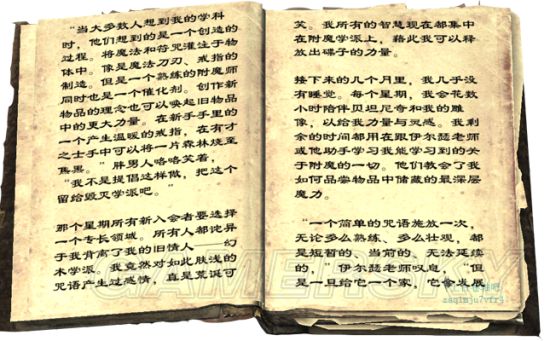 “当大多数人想到我的学科
时，他们想到的是一个创造的
过程。将魔法和符咒灌注于物
体中。像是魔法刀刃、戒指的
制造。但是一个熟练的附魔师
同时也是一个催化剂。创作新
物品的理念也可以唤起旧物品
中的更大力量。在新手手里的
一个产生温暖的戒指，在有才
之士手中可以将一片森林烧至
焦黑。”胖男人咯咯笑着，
“我不是提倡这样做，把这个
留给毁灭学派吧。”
那个星期所有新入会者要选择
一个专长领域。所有人都诧异
于我背离了我的旧情人 幻
术学派。我竟然对如此肤浅的
咒语产生过感情，真是荒诞可
笑。我所有的智慧现在都集中
在附魔学派上，藉此我可以释
放出碟子的力量。
接下来的几个月里，我几乎没
有睡觉。每个星期，我会花数
小时陪伴贝坦尼奇和我的雕
像，以给我力量与灵感。我剩
余的时间都用在跟伊尔瑟老师
或他助手学习我能学习到的关
于附魔的一切。他们教会了我
如何品尝物品中储藏的最深层
魔力。
“一个简单的咒语施放一次，
无论多么熟练、多么壮观，都
是短暂的、当前的、无法延续
的，”伊尔瑟老师叹息，“但
是一旦给它一个家，它像发展
GAMERSKY